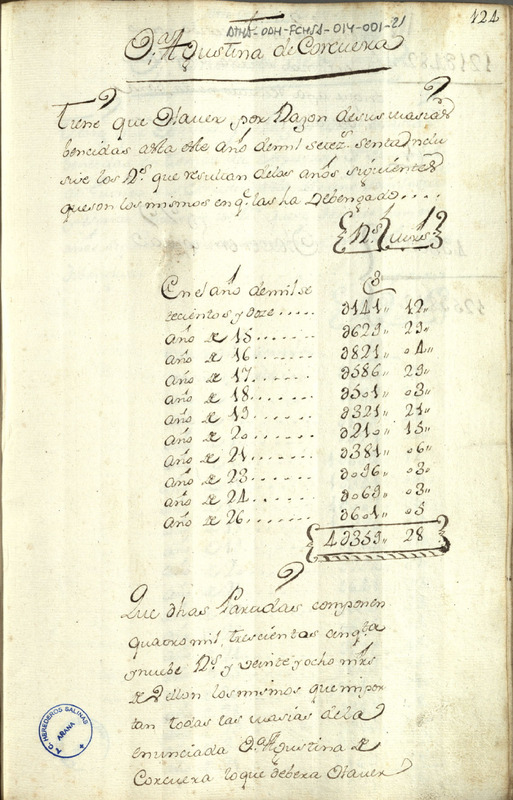 124
ATHA-DAH-FCHSA-014-001-21
D.ª Agustina de Corcuera
Tiene que Haver por Razon desus
bencidas asta este año demil setez.s sentaYnclu
sive los R.s que resultan delas años siguientes
queson los mismos enq.e las ha Debengado....
R.s mrs
Enel año demil se
tecientos y doze..... D141,, 12,,
año de 15....... D629,, 29,,
año de 16....... D821,, 04,,
año de 17....... D586,, 29,,
año de 18....... D501,, 03,,
año de 19....... D321,, 21,,
año de 20....... D210,, 15,,
año de 21....... D381,, 06,,
año de 23....... D096,, 03,,
año de 24....... D069,, 03,,
año de 26....... D601,, 05
4D359,, 28,,
Que dhas Partidas componen
quatro mil, trescientas cinq.ta
ynuebe R.s y veinte yocho mrs
de Vellon losmismos queimpor
tan todas las de la
enunciada D.ª Agustina de
Corcuera loque debera Haver
A.C. HEREDEROS SALINAS
ARANA